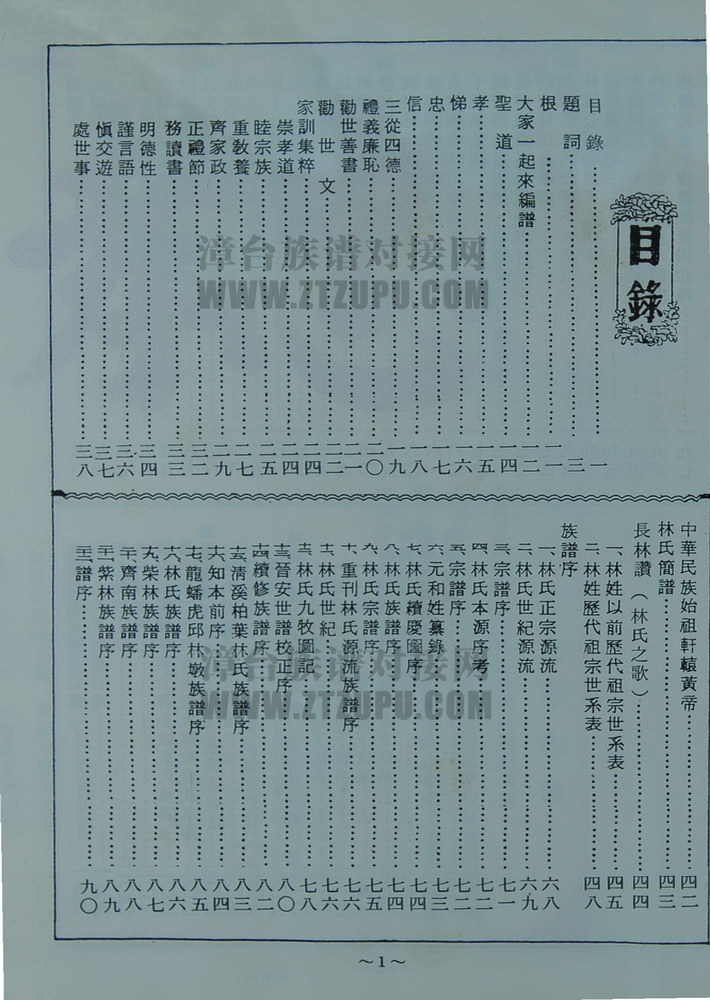 目錄
目錄……一
題詞……三
根……一一
大家一起來編譜……一二
聖道……一四
孝……一五
悌……一六
忠……一七
信……一八
三從四德……一九
禮義廉恥……二〇
勸世善書……二一
勸世文……二二
家訓集粹……二四
崇孝道……二四
睦宗族……二五
重敎養……二七
齊家政……二九
正禮節……三二
務讀書……三三
明德性……三四
謹言語……三六
愼交遊……三七
處世事……三八
中華民族始祖軒轅黃帝……四二
林氏簡譜……四三
長林讚（林氏之歌）……四四
一、林姓以前歷代祖宗世系表……四五
二、林姓歷代祖宗世系表……四八
族譜序
一、林氏正宗源流……六八
二、林氏世紀源流……六九
三、宗譜序……七一
四、林氏本源序考……七二
五、宗譜序……七二
六、元和姓纂錄……七三
七、林氏續慶圖序……七四
八、林氏族譜序……七四
九、林氏宗譜序……七五
十、重刊林氏源流族譜序……七六
十一、林氏世紀……七六
十二、林氏九牧圖記……七八
十三、晉安世譜校正序……八〇
十四、續修族譜序……八二
十五、淸溪柏葉林氏族譜序……八三
十六、知本前序……八四
十七、龍蟠虎邱林墩族譜序……八五
十八、林氏族譜序……八六
十九、柴林族譜序……八七
二十、齊南族譜序……八八
二十一、紫林族譜序……八九
二十二、譜序……九〇
～1～
漳台族谱对接网
WWW.ZTZUPU.COM
漳台族谱对接网
WWW.ZTZUPU.COM